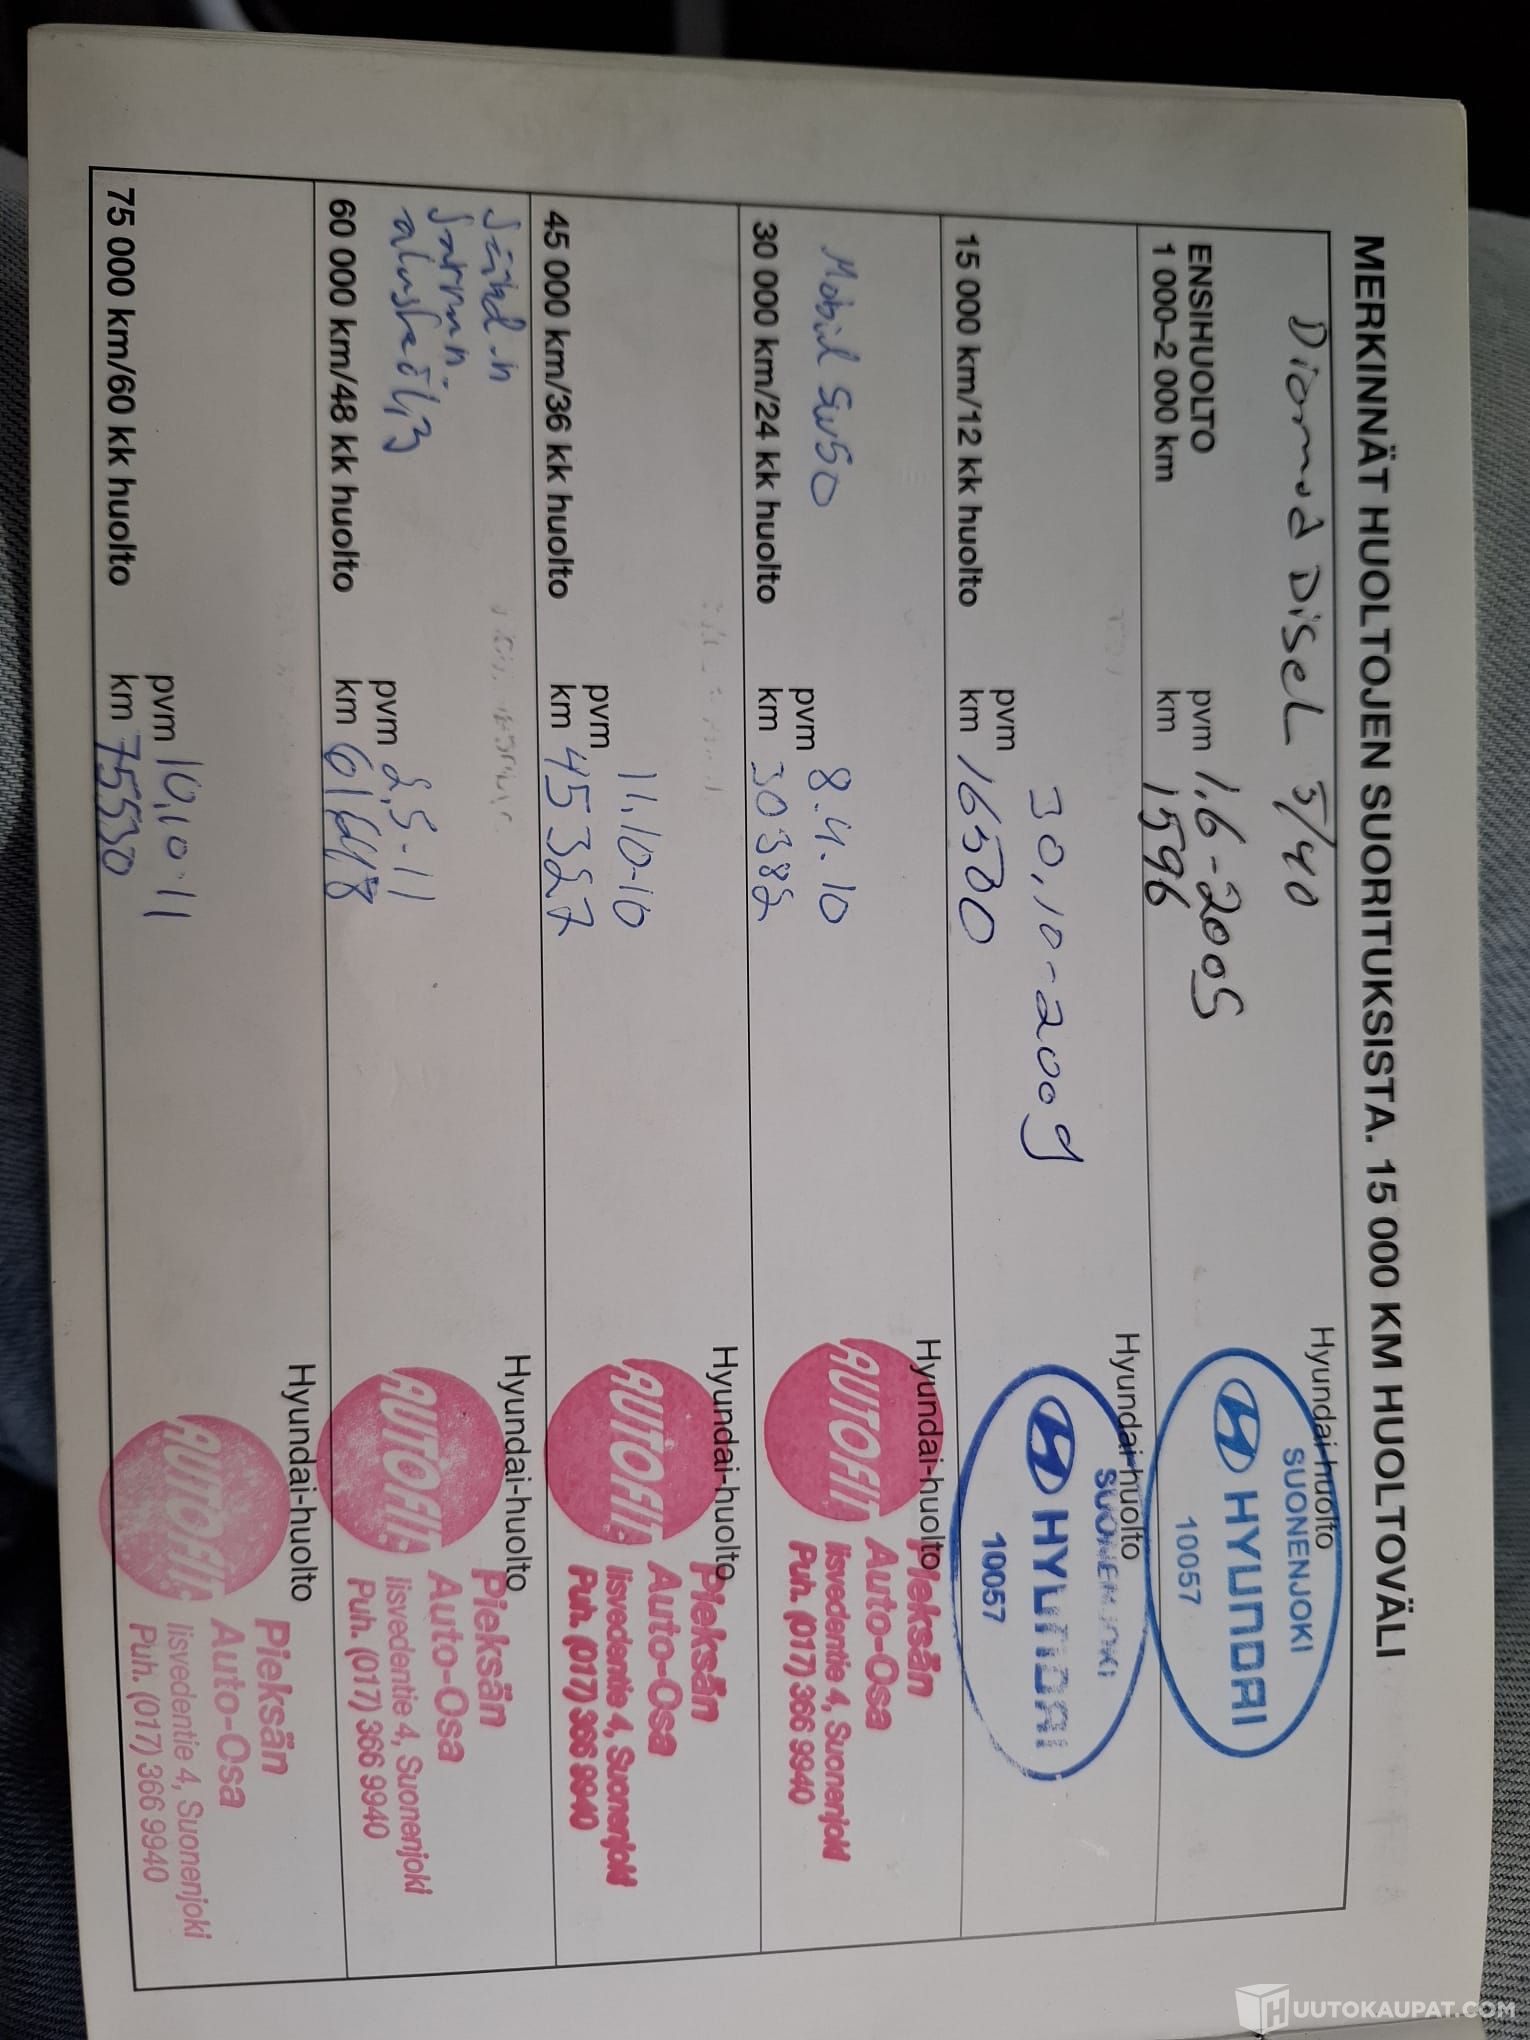 MERKINNÄT HUOLTOJEN SUORITUKSISTA. 15 000 KM HUOLTOVÄLI
Diamond DiseL 5/40
ENSIHUOLTO
1 000–2 000 km
pvm 1.6-2009
km 1596
Hyundai-huolto
SUONENJOKI
HYUNDAI
10057
15 000 km/12 kk huolto
pvm 30.10-2009
km 16500
Hyundai-huolto
SUONENJOKI
HYUNDAI
10057
Mobil 5w50
30 000 km/24 kk huolto
pvm 8.4.10
km 30382
Hyundai-huolto
AUTOFIT
Pieksän
Auto-Osa
Iisvedentie 4, Suonenjoki
Puh. (017) 366 9940
45 000 km/36 kk huolto
pvm 11.10-10
km 45327
Hyundai-huolto
AUTOFIT
Pieksän
Auto-Osa
Iisvedentie 4, Suonenjoki
Puh. (017) 366 9940
60 000 km/48 kk huolto
pvm 2.5-11
km 61448
Hyundai-huolto
AUTOFIT
Pieksän
Auto-Osa
Iisvedentie 4, Suonenjoki
Puh. (017) 366 9940
75 000 km/60 kk huolto
pvm 10.10-11
km 75530
Hyundai-huolto
AUTOFIT
Pieksän
Auto-Osa
Iisvedentie 4, Suonenjoki
Puh. (017) 366 9940
HUUTOKAUPAT.COM